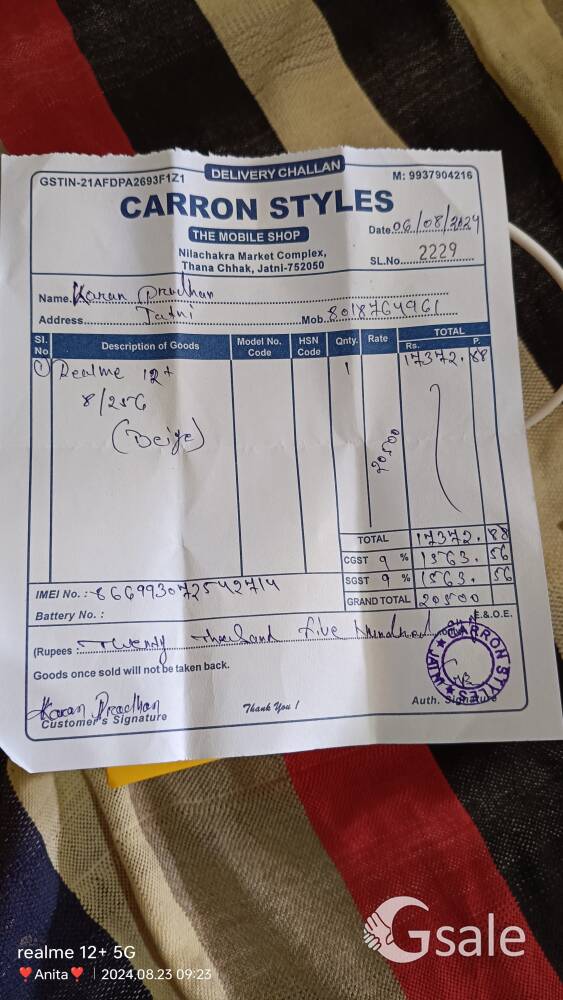 DELIVERY CHALLAN
GSTIN-21AFDPA2693F1Z1
M: 9937904216
CARRON STYLES
THE MOBILE SHOP
Nilachakra Market Complex,
Thana Chhak, Jatni-752050
Date...06/08/2024
SL.No....2229
Name. Karan Pradhan
Address. Jatni Mob. 8018764961
Sl. No. Description of Goods Model No. Code HSN Code Qnty. Rate TOTAL Rs. P.
1 Realme 12+ 1 20500 17372.88
8/256
(Beige)
TOTAL 17372.88
CGST 9 % 1563.56
SGST 9 % 1563.56
GRAND TOTAL 20500
IMEI No. :- 866993072542714
Battery No. :
E.&O.E.
(Rupees : Twenty Thousand five hundred only
Goods once sold will not be taken back.
CARRON STYLES ★ JATNI ★
Karan Pradhan
Customer's Signature
Thank You !
Auth. Signature
Gsale
realme 12+ 5G
❤Anita❤ | 2024.08.23 09:23